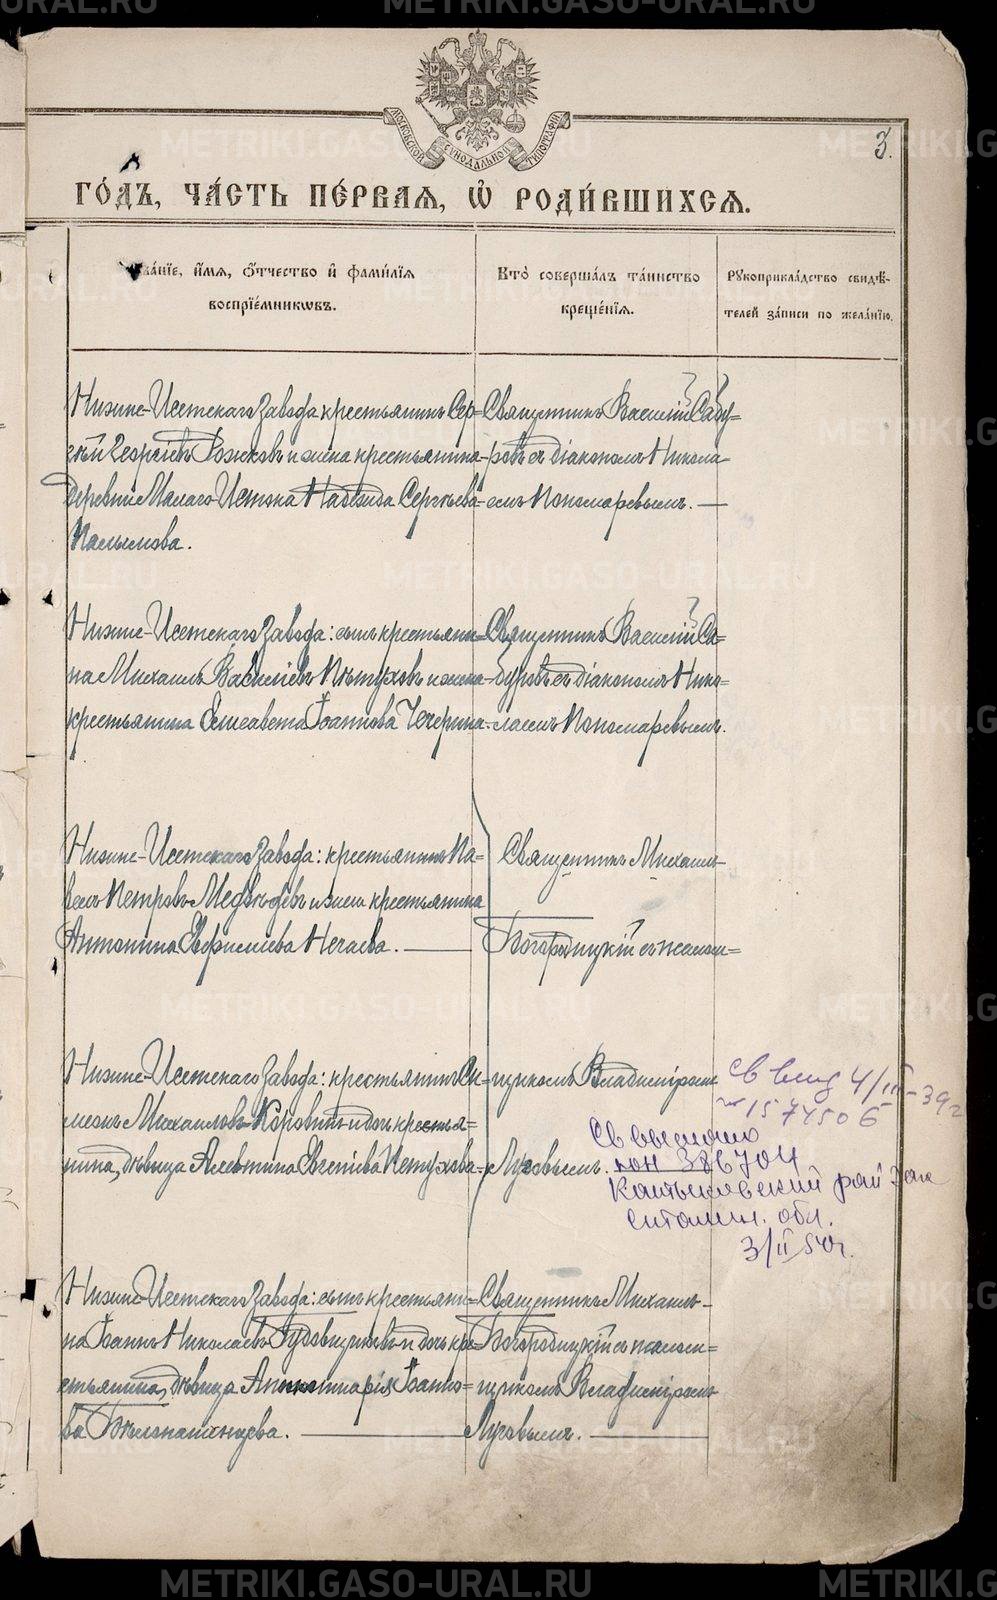 МОСКОВСКОЙ СѴНОДАЛЬНОЙ ТИПОГРАФІИ
3.
ГО́ДЪ, ЧА́СТЬ ПЕ́РВАЯ, Ѡ҆ РОДИ́ВШИХСЯ.
ва́нїе, и҆́мя, ѻ҆́тчество и҆ фами́лїя
воспрїе́мникѡвъ.
Кто̀ соверша́лъ та́инство
креще́нїя.
Рꙋкоприкла́дство свидѣ́-
телей за́писи по жела́нїю.
Нижне-Исетскаго завода крестьянинъ Сер-
гѣй Георгіевъ и жена крестьянина
деревни Малаго Истока Надежда Сергѣева
Палымова.
Священникъ Василій Сабу-
ровъ съ діакономъ Никола-
емъ Пономаревымъ. —
Нижне-Исетскаго завода: сынъ крестьяни-
на Михаилъ Васильевъ Пѣтуховъ и жена
крестьянина Елисавета Іоаннова Чечерина.
Священникъ Василій Са-
буровъ съ діакономъ Нико-
лаемъ Пономаревымъ.
Нижне-Исетскаго завода: крестьянинъ Па-
велъ Петровъ Медвѣдевъ и жена крестьянина
Антонина Нечаева. —
Священникъ Михаилъ
Богородицкій съ псалом-
Нижне-Исетскаго завода: крестьянинъ Си-
меонъ Михаиловъ Коровинъ и дочь крестья-
нина, дѣвица Алевтина Евгеніева Петухова.
щикомъ Владиміромъ
Луговымъ.
Св 4/III-39г
№ 157450 Б
Св выслано
386704
рай Зак
обл.
3/II 50г.
Нижне-Исетскаго завода: сынъ крестьяни-
на Іоаннъ Николаевъ и дочь кре-
стьянина, дѣвица Аполлинарія Іоанно-
ва
Священникъ Михаилъ
Богородицкій съ псалом-
щикомъ Владиміромъ
Луговымъ. —
METRIKI.GASO-URAL.RU